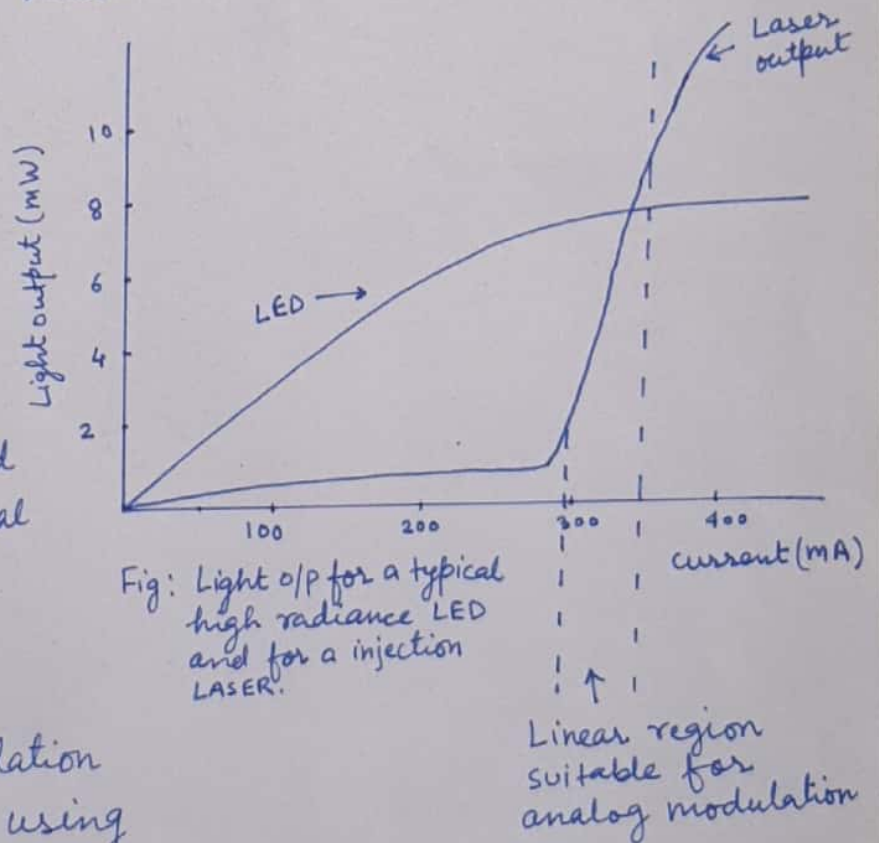 Laser
output
10
8
6
4
2
Light output (mW)
LED
100
200
300
400
current (mA)
Fig: Light o/p for a typical
high radiance LED
and for a injection
LASER.
Linear region
suitable for
analog modulation
lation
using